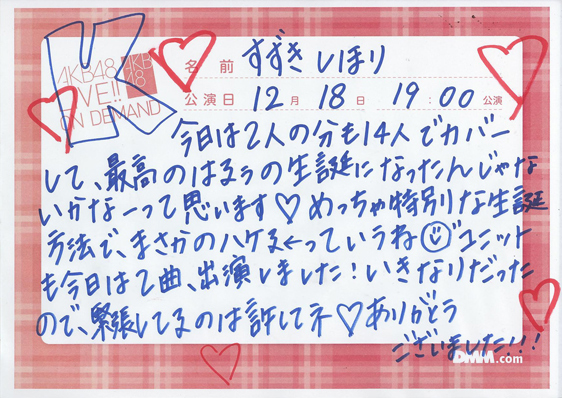 K
AKB48
LIVE!!
ON DEMAND
AKB
48
名前 すずきしほり
公演日 12月 18日 19:00 公演
今日は2人の分も14人でカバー
して、最高のはるぅの生誕になったんじゃな
いかなーって思います♡めっちゃ特別な生誕
方法で、まさかのハケる←っていうね☺ユニット
も今日は2曲、出演しました!いきなりだった
ので、緊張してるのは許してネ♡ありがとう
ございました!!!
DMM.com